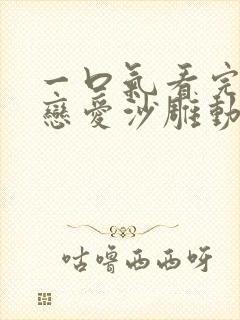 一口氣看完
戀愛沙雕動
咕嚕西西呀